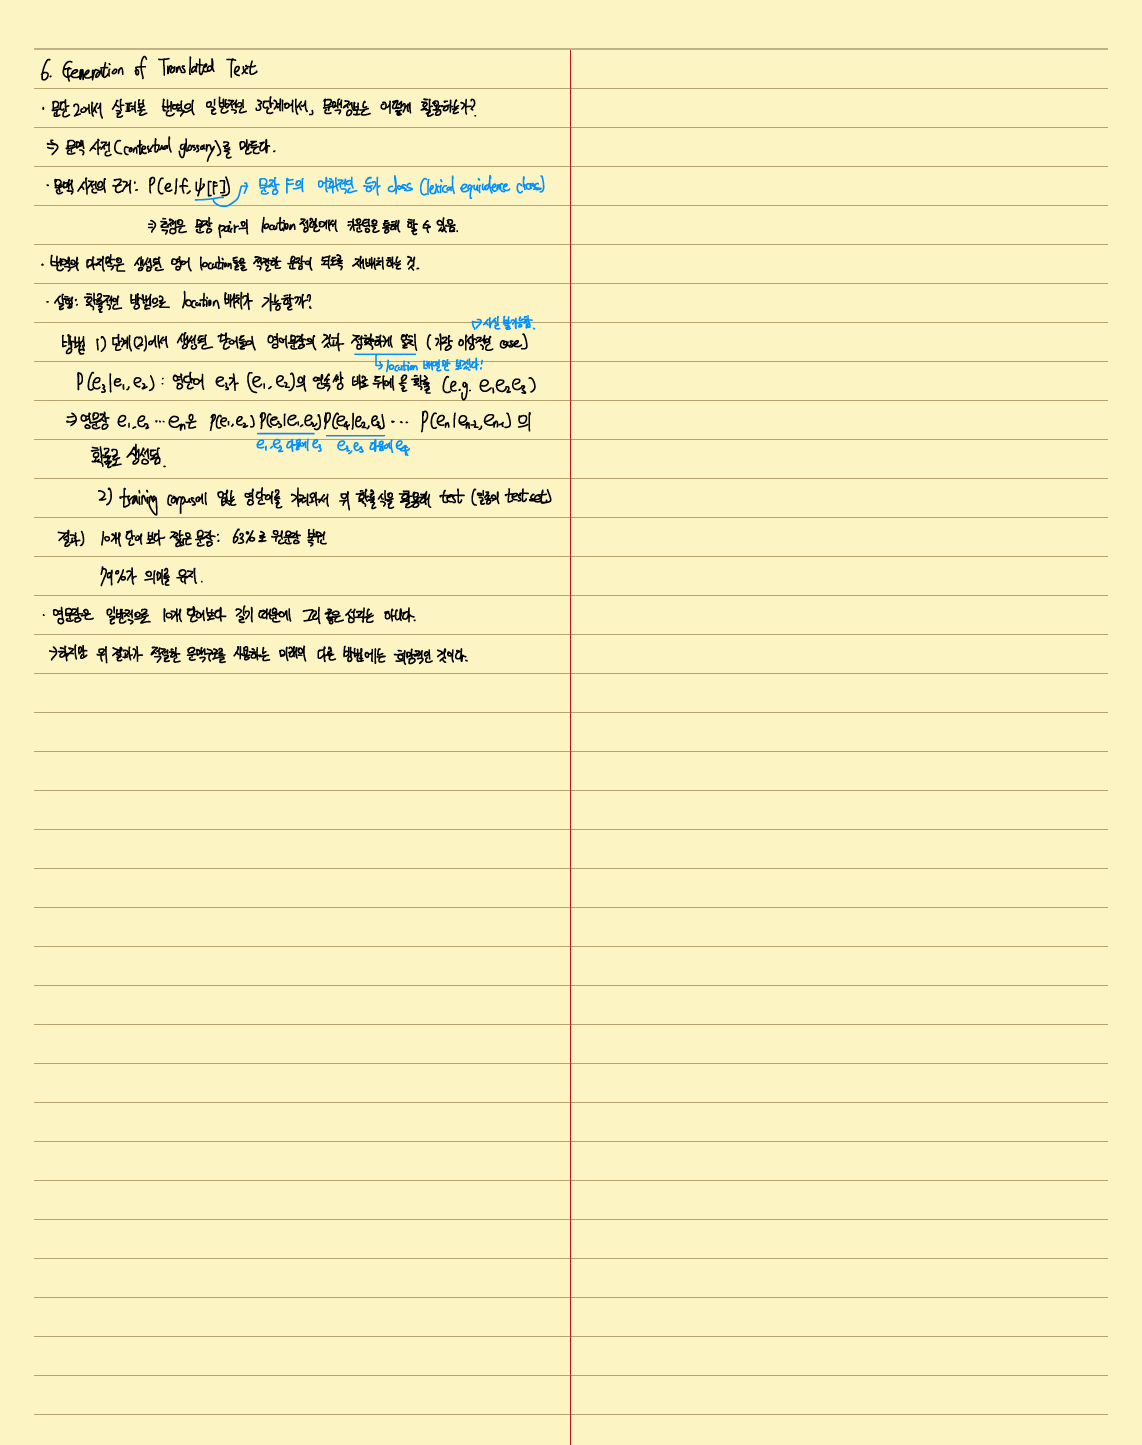 6. Generation of Translated Text
· 문단 2에서 살펴본 번역의 일반적인 3단계에서, 문맥정보는 어떻게 활용하는가?
⇒ 문맥 사전(contextual glossary)를 만든다.
· 문맥 사전의 근거: P(e|f, ψ[F]) → 문장 F의 어휘적인 등가 class (lexical equivalence class)
⇒ 측정은 문장 pair의 location 집합에서 카운팅을 통해 할 수 있음.
· 번역의 마지막은 생성된 영어 location들을 적절한 문장이 되도록 재배치하는 것.
· 실험: 확률적인 방법으로 location 배치가 가능할까?
↗사실 불가능함.
방법 1) 단계(2)에서 생성된 단어들이 영어문장의 것과 정확하게 일치 (가장 이상적인 case)
↳ location 배열만 보겠다!
P(e₃|e₁, e₂) : 영단어 e₃가 (e₁, e₂)의 연속쌍 바로 뒤에 올 확률 (e.g. e₁e₂e₃)
⇒ 영문장 e₁, e₂ ··· eₙ은 P(e₁, e₂) P(e₃|e₁, e₂) P(e₄|e₂, e₃) ··· P(eₙ|eₙ₋₂, eₙ₋₁) 의
e₁, e₂ 다음에 e₃ e₂, e₃ 다음에 e₄
확률로 생성됨.
2) training corpus에 없는 영단어를 가져와서 위 확률식을 활용해 test (일종의 test set)
결과) 10개 단어 보다 짧은 문장: 63%로 원문장 복원
79%가 의미를 유지.
· 영문장은 일반적으로 10개 단어보다 길기 때문에 그리 좋은 성과는 아니다.
→ 하지만 위 결과가 적절한 문맥구조를 사용하는 미래의 다른 방법에는 희망적인 것이다.